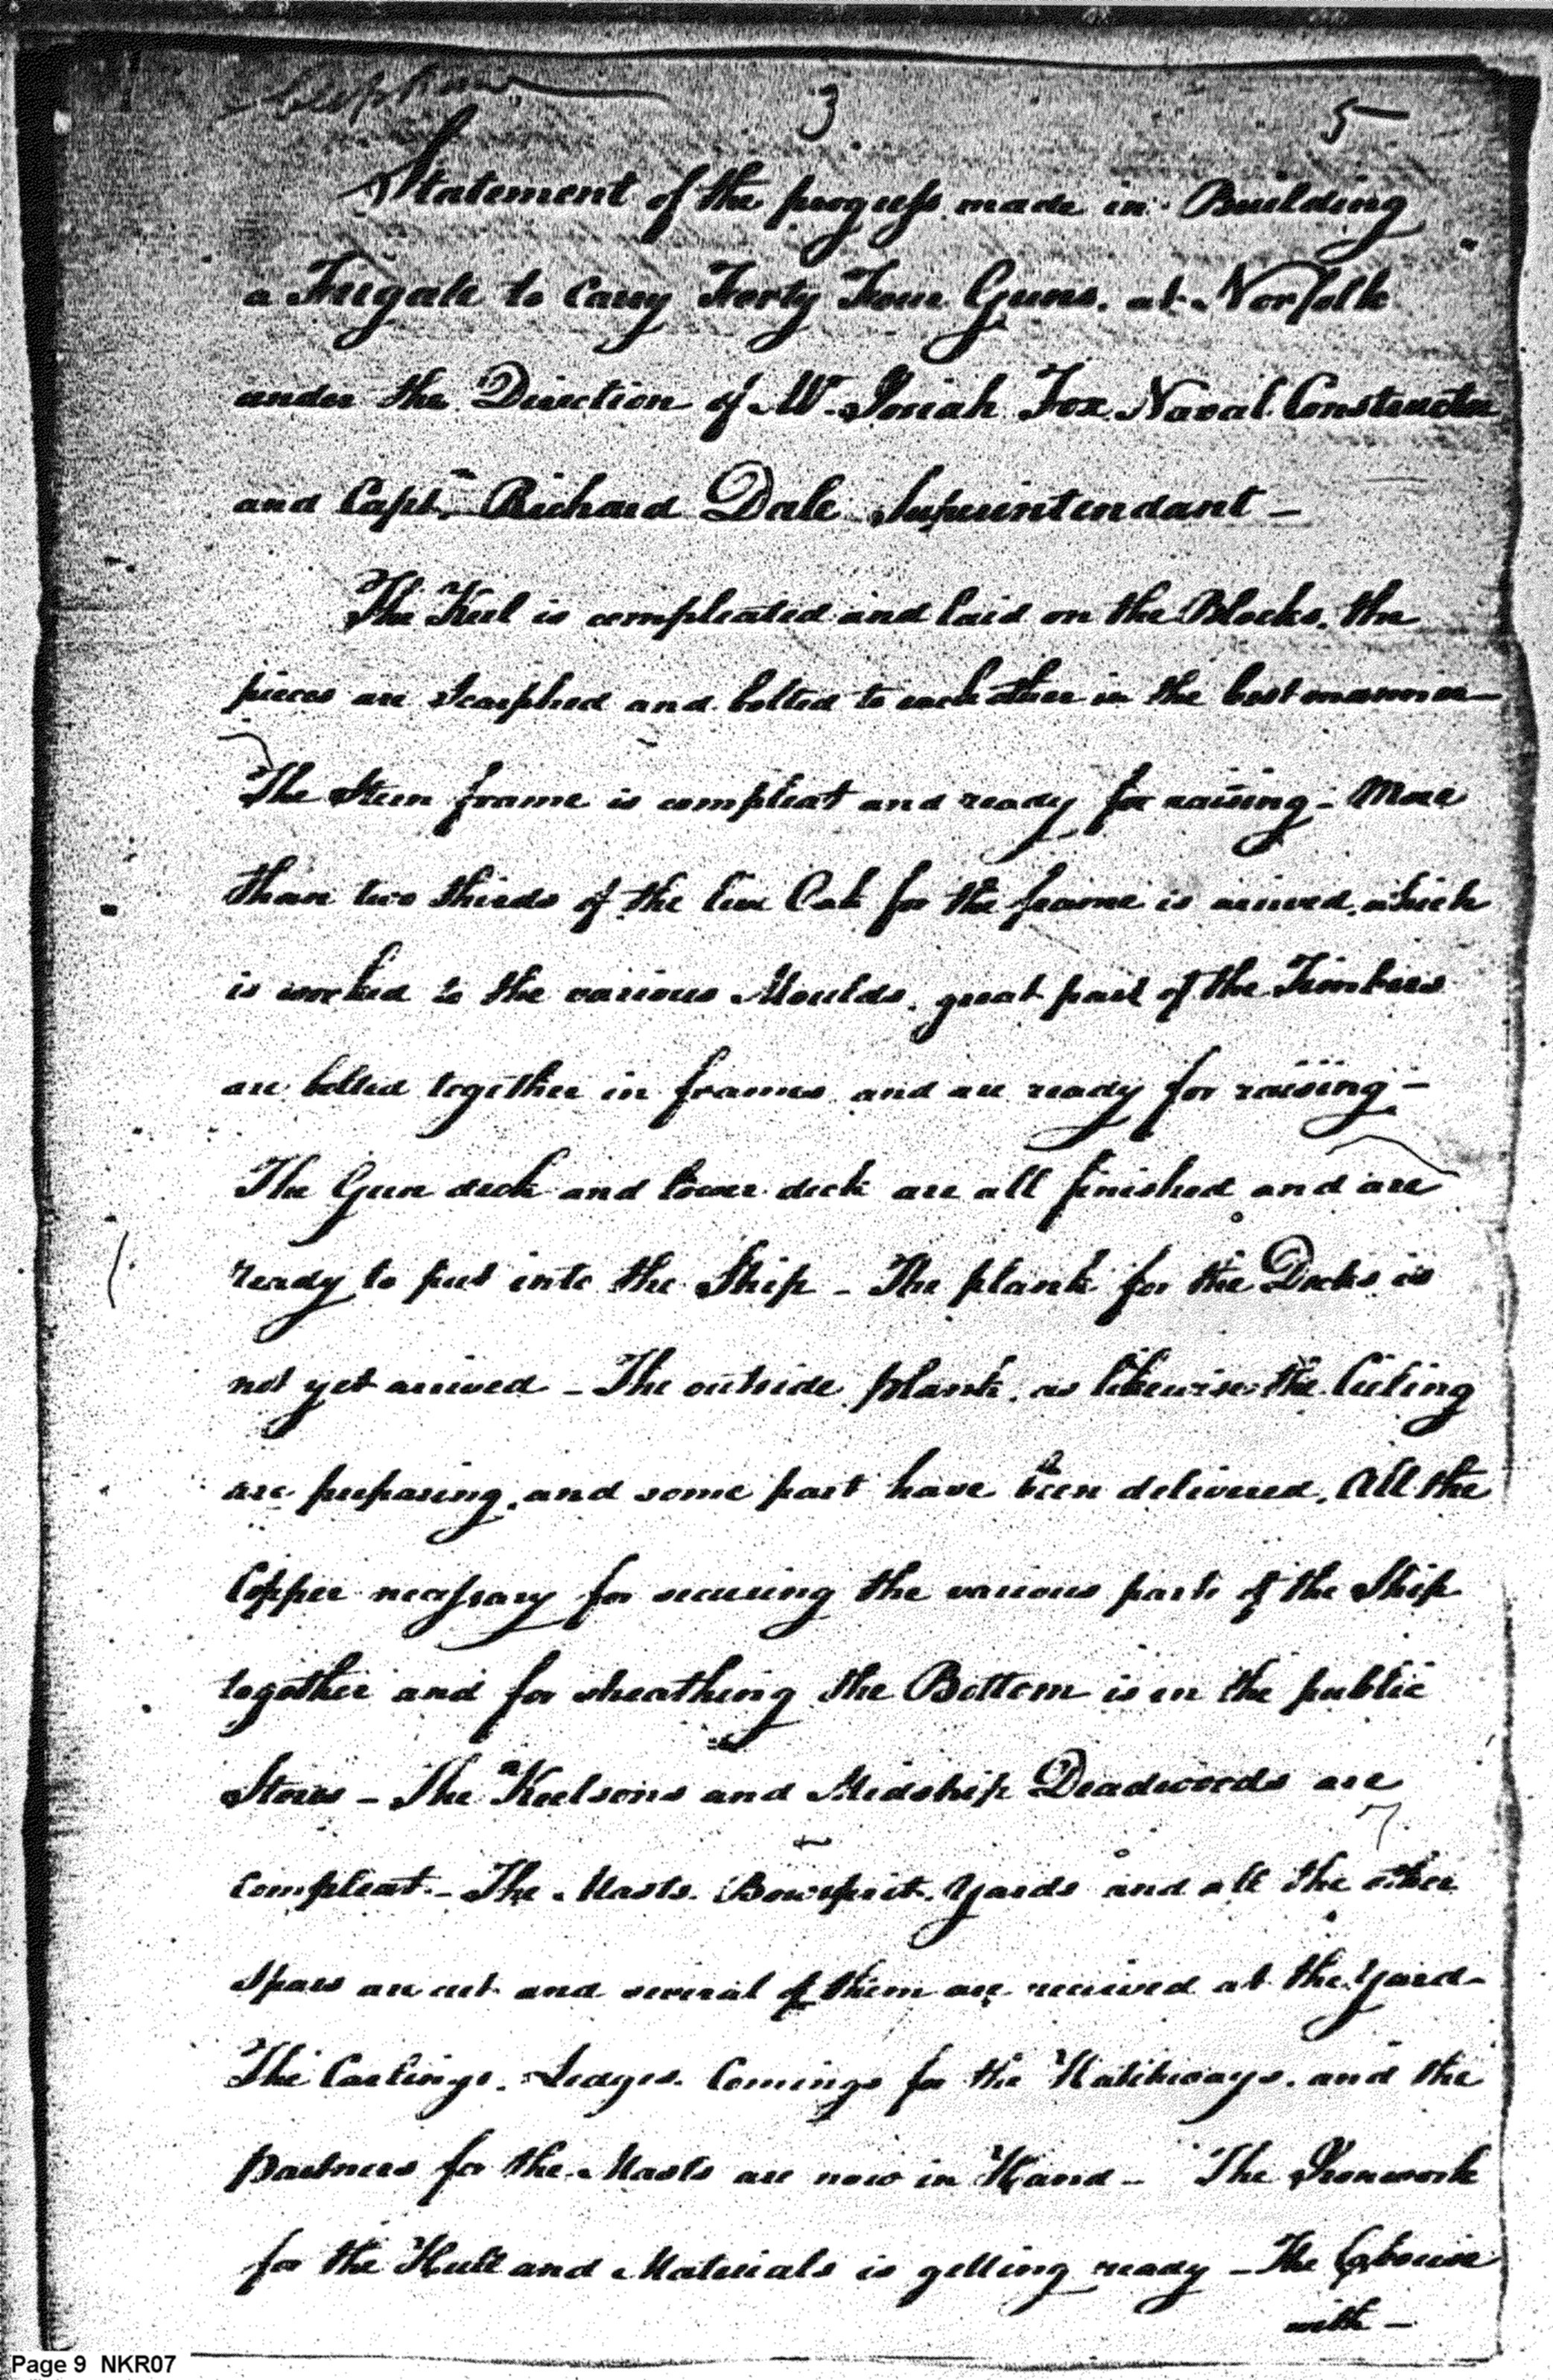 3 5
Statement of the progress made in Building
a Frigate to Carry Forty Four Guns. at Norfolk
under the Direction of Mr. Josiah Fox Naval Constructor
and Capt. Richard Dale Superintendant –
The Keel is compleated and laid on the Blocks. the
pieces are Scarphed and bolted to each other in the best manner –
The Stern frame is compleat and ready for raising – More
than two thirds of the live Oak for the frame is arrived, which
is worked to the various Moulds. great part of the Timbers
are bolted together in frames and are ready for raising –
The Gun deck and lower deck are all finished and are
ready to put into the Ship – The plank for the Decks is
not yet arrived – The outside plank. as likewise the Cieling
are preparing, and some part have been delivered. All the
Copper necessary for securing the various parts of the Ship
together and for sheathing the Bottom is in the public
Stores – The Keelsons and Midship Deadwoods are
Compleat – The Masts. Bowsprit. Yards and all the other
Spars are cut and several of them are received at the Yard –
The Carlings. Ledges. Comings for the Hatchways. and the
partners for the Masts are now in Hand – The Ironwork
for the Hull and Materials is getting ready – The Cabouse
with –
Page 9 NKR07